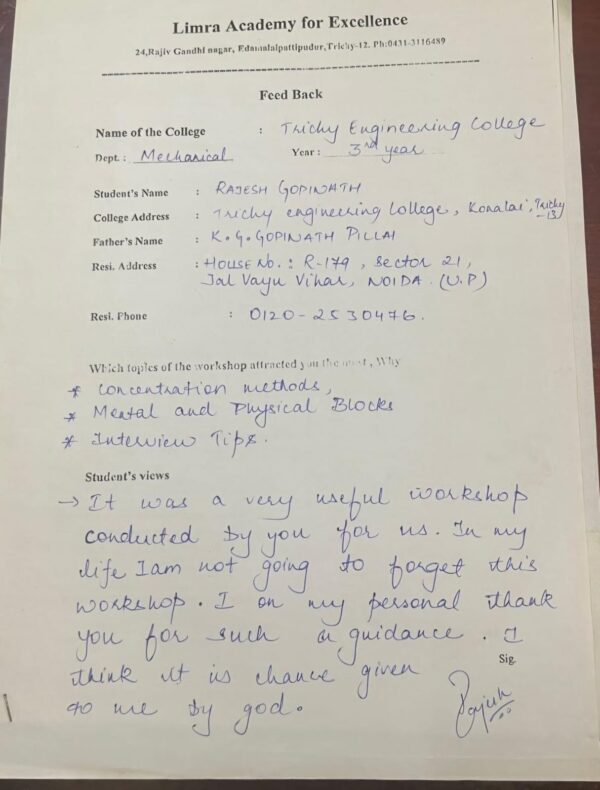 Limra Academy for Excellence
24,Rajiv Gandhi nagar, Edamalaipattipudur,Trichy-12. Ph:0431-3116489
Feed Back
Name of the College : Trichy Engineering College
Dept.: Mechanical Year: 3rd year
Student's Name : RAJESH GOPINATH
College Address : Trichy engineering College, Konalai, Trichy -13
Father's Name : K.G.GOPINATH PILLAI
Resi. Address : HOUSE No.: R-179, Sector 21,
Jal Vayu Vihar, NOIDA (U.P)
Resi. Phone : 0120-2530476.
Which topics of the workshop attracted you the most, Why
* Concentration methods,
* Mental and Physical Blocks
* Interview Tips.
Student's views
→ It was a very useful workshop
conducted by you for us. In my
life I am not going to forget this
workshop. I on my personal thank
you for such a guidance. I
Sig.
think it is chance given
to me by god.
Rajesh